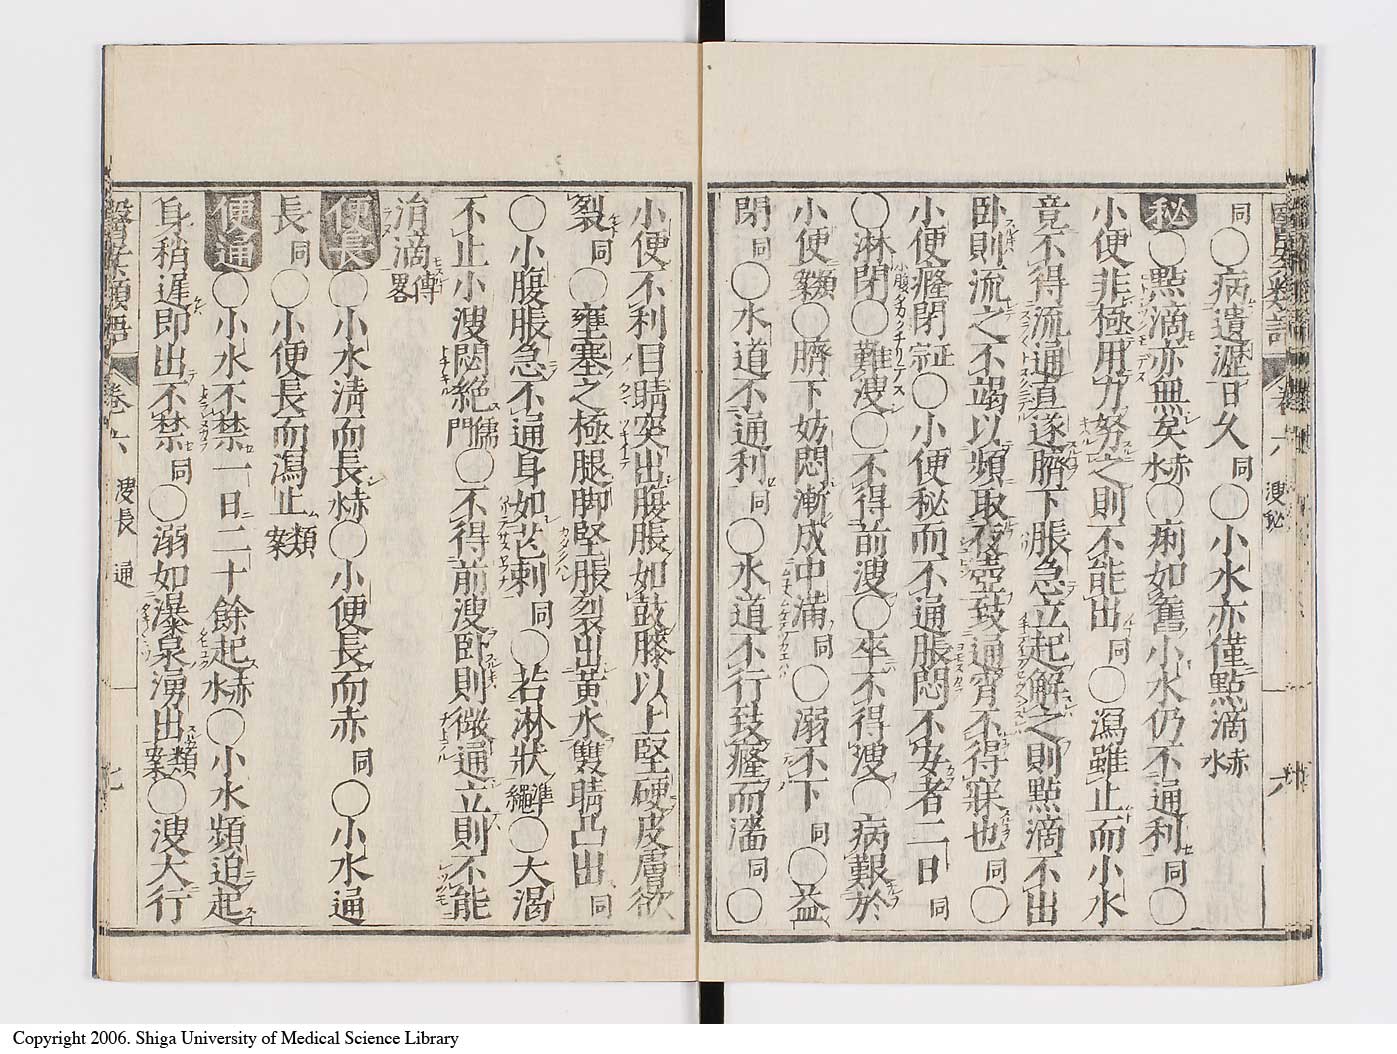 同○病遺瀝日久同○小水亦僅點滴赤水
秘○點滴亦無矣赤水○痢如舊小水仍不通利同○
小便非極用力努之則不能出同○瀉雖止而小水
竟不得流通直遂臍下脹急立起解之則點滴不出
臥則流之不竭以頻取夜壺致通宵不得寐也同○
小便癃閉正宗○小便秘而不通脹悶不安者二日同
○淋閉○難溲○不得前溲○卒不得溲○病艱於
小便類案○臍下妨悶漸成中滿同○溺不下同○益
閉同○水道不通利同○水道不行致癃而濇同○
小便不利目睛突出腹脹如鼓膝以上堅硬皮膚欲
裂同○壅塞之極腿脚堅脹裂出黃水雙睛凸出同
○小腹脹急不通身如芒刺同○若淋狀準繩○大渴
不止小溲悶絕儒門○不得前溲臥則微通立則不能
涓滴傳畧
便長○小水清而長赤水○小便長而赤同○小水通
長同○小便長而瀉止類案
便通○小水不禁一日二十餘起赤水○小水頻迫起
身稍遲即出不禁同○溺如瀑泉湧出類案○溲大行
卷六 溲長 通
Copyright 2006. Shiga University of Medical Science Library